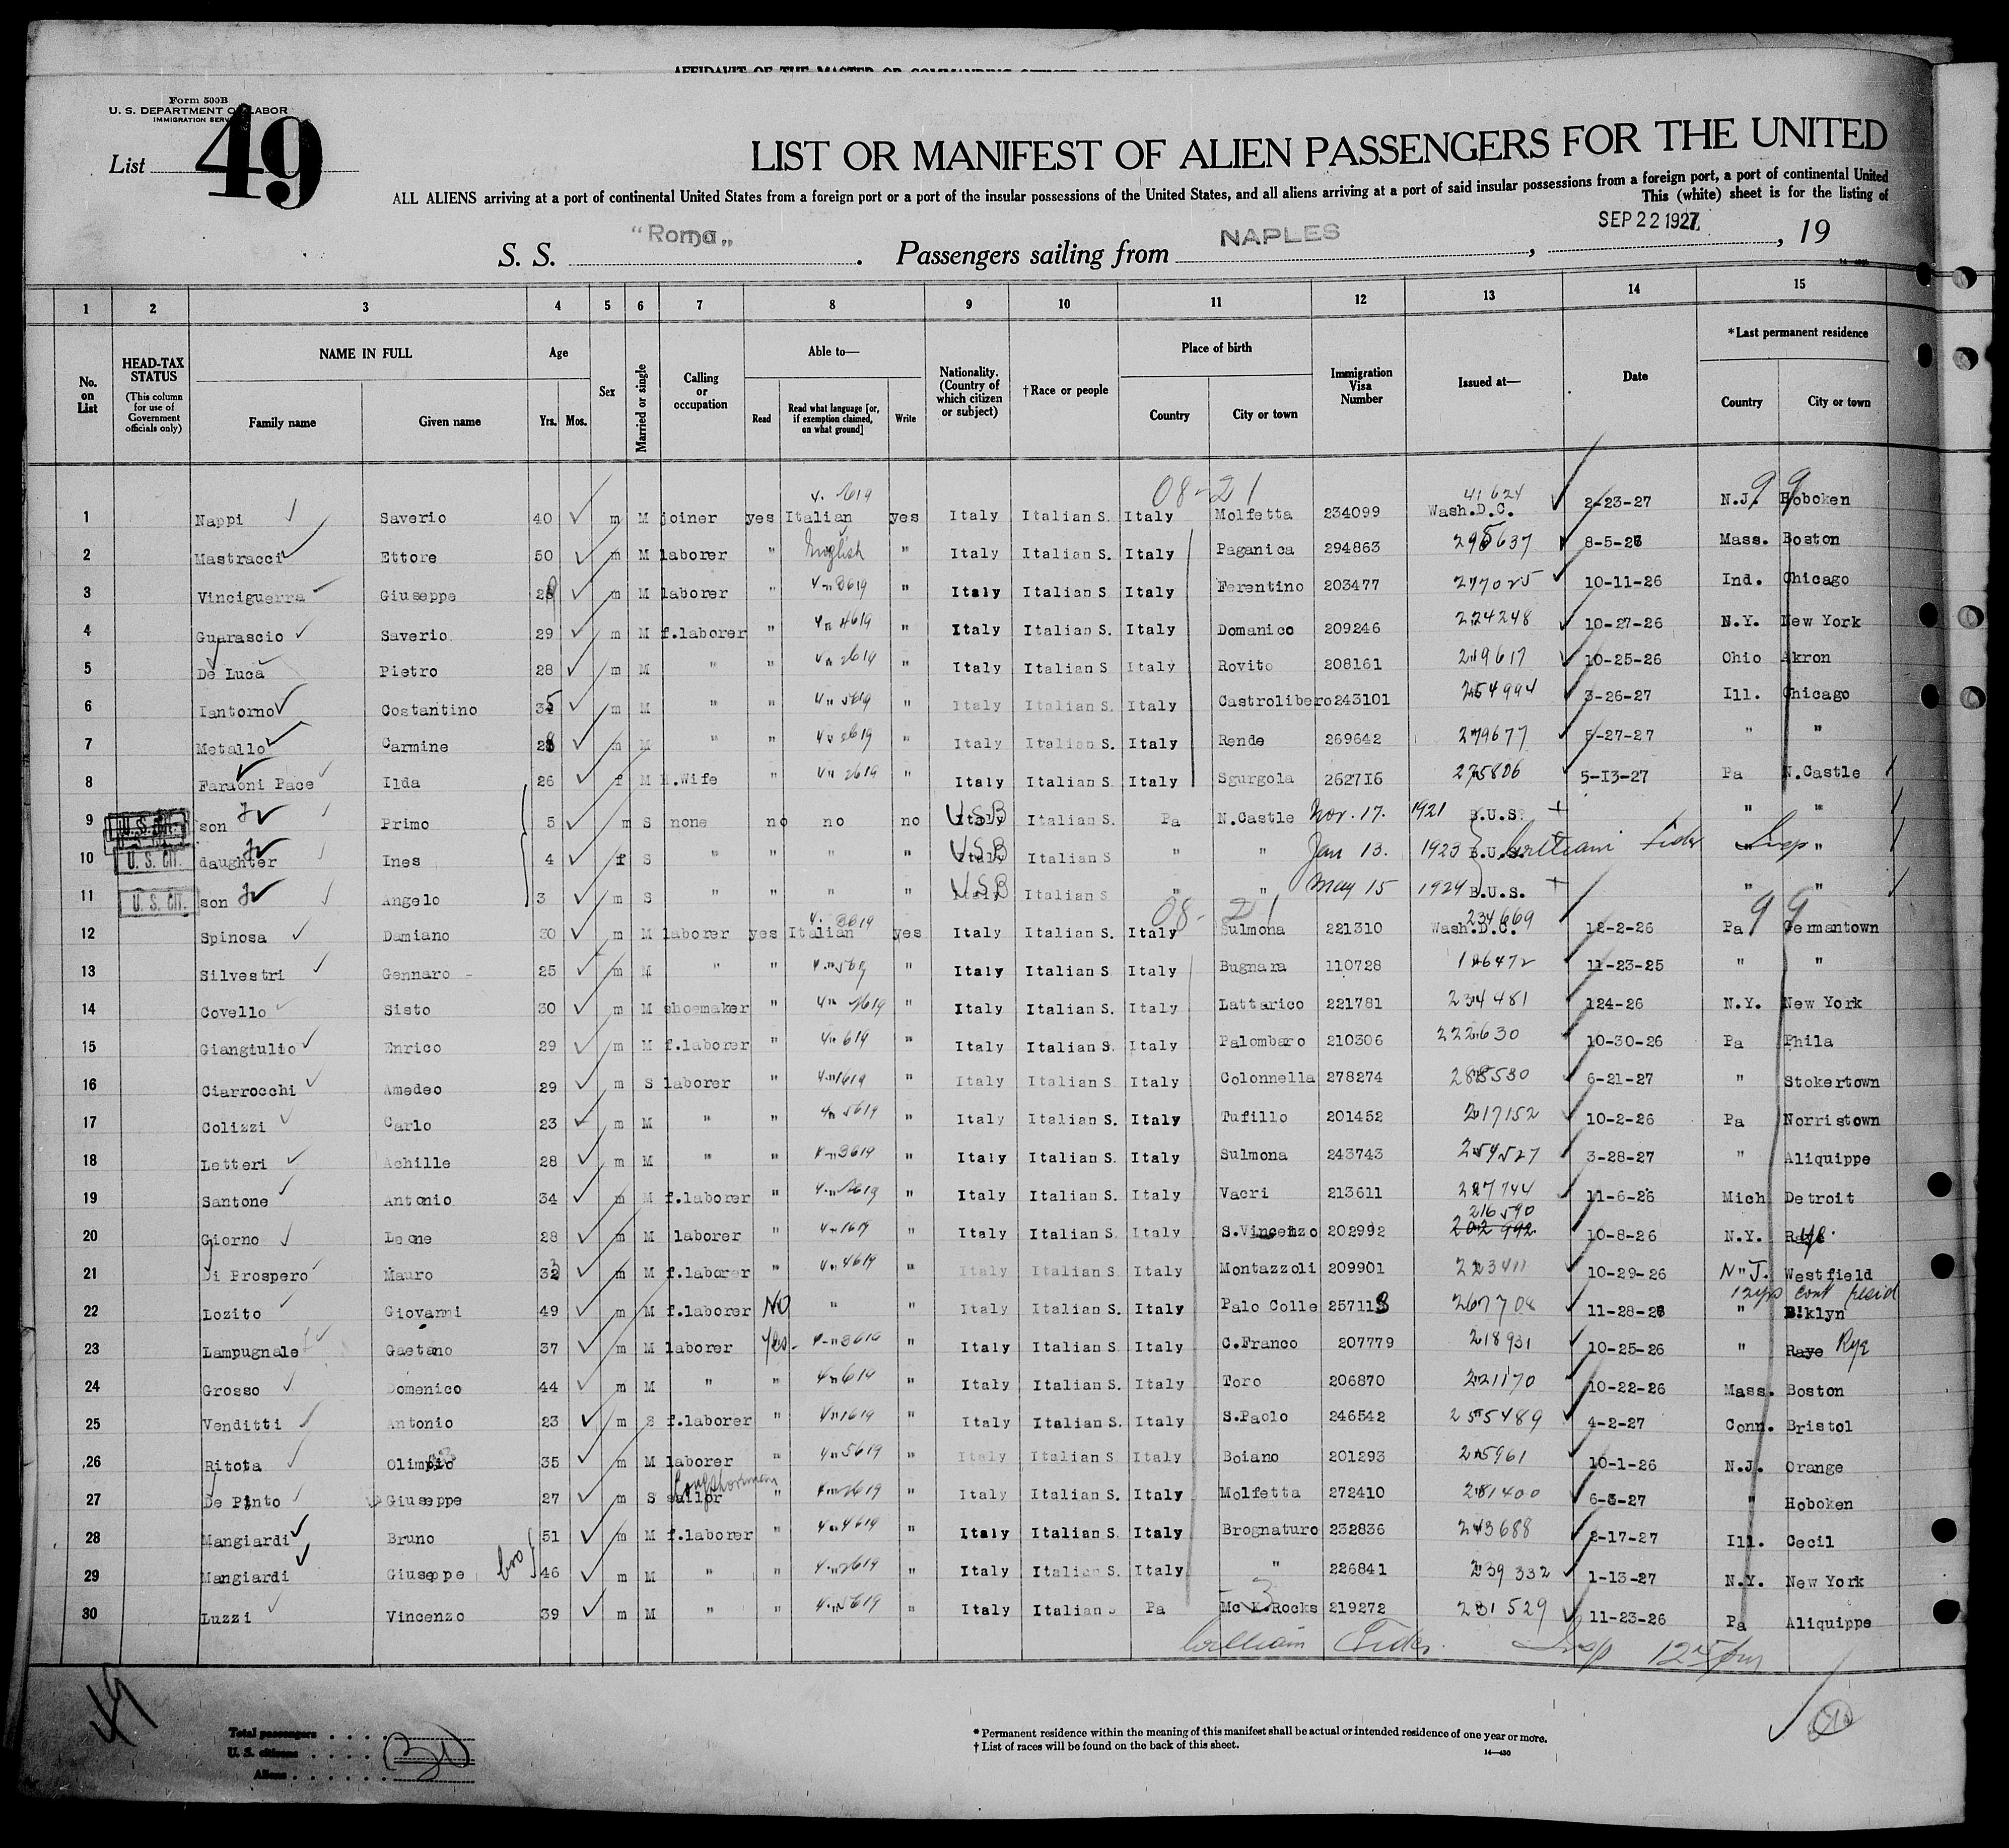 AFFIDAVIT OF THE MASTER OR COMMANDING OFFICER, OR FIRST OR
Form 500B
U. S. DEPARTMENT OF LABOR
IMMIGRATION SERV
List 49
LIST OR MANIFEST OF ALIEN PASSENGERS FOR THE UNITED
ALL ALIENS arriving at a port of continental United States from a foreign port or a port of the insular possessions of the United States, and all aliens arriving at a port of said insular possessions from a foreign port, a port of continental United
This (white) sheet is for the listing of
S. S. "Roma" . Passengers sailing from NAPLES , SEP 22 1927 , 19
1 2 3 4 5 6 7 8 9 10 11 12 13 14 15
No. on List
HEAD-TAX STATUS (This column for use of Government officials only)
NAME IN FULL Family name Given name
Age Yrs. Mos.
Sex
Married or single
Calling or occupation
Able to— Read Read what language [or, if exemption claimed, on what ground] Write
Nationality. (Country of which citizen or subject)
†Race or people
Place of birth Country City or town
Immigration Visa Number
Issued at—
Date
*Last permanent residence Country City or town
08-21 41624 99
1 Nappi Saverio 40 m M joiner yes Italian yes Italy Italian S. Italy Molfetta 234099 Wash.D.C. 2-23-27 N.J. Hoboken
2 Mastracci Ettore 50 m M laborer " English " Italy Italian S. Italy Paganica 294863 295637 8-5-26 Mass. Boston
3 Vinciguerra Giuseppe m M laborer " " Italy Italian S Italy Ferentino 203477 217025 10-11-26 Ind. Chicago
4 Guarascio Saverio 29 m M f.laborer " " Italy Italian S. Italy Domanico 209246 224248 10-27-26 N.Y. New York
5 De Luca Pietro 28 m M " " " Italy Italian S Italy Rovito 208161 219617 10-25-26 Ohio Akron
6 Iantorno Costantino 35 m M " " " Italy Italian S. Italy Castrolibero 243101 254994 3-26-27 Ill. Chicago
7 Metallo Carmine 28 m M " " " Italy Italian S. Italy Rende 269642 279677 5-27-27 " "
8 Faraoni Pace Ilda 26 f M H.Wife " " Italy Italian S. Italy Sgurgola 262716 275806 5-13-27 Pa N.Castle
9 U.S. CIT. son Primo 5 m S none no no no USB Italian S. Pa N.Castle Nov. 17. 1921 B.U.S. " "
10 U.S. CIT. daughter Ines 4 f S " " " " USB Italian S " " Jan 13. 1923 B.U.S. William Insp "
11 U.S. CIT. son Angelo 3 m S " " " " USB Italian S " " May 15 1924 B.U.S. " "
08-21 234669 99
12 Spinosa Damiano 30 m M laborer yes Italian yes Italy Italian S. Italy Sulmona 221310 Wash.D.C. 12-2-26 Pa Germantown
13 Silvestri Gennaro 25 m M " " " Italy Italian S Italy Bugnara 110728 116472 11-23-25 " "
14 Covello Sisto 30 m M shoemaker " " Italy Italian S. Italy Lattarico 221781 234481 124-26 N.Y. New York
15 Giangiulio Enrico 29 m M f.laborer " " Italy Italian S Italy Palombaro 210306 222630 10-30-26 Pa Phila
16 Ciarrocchi Amedeo 29 m S laborer " " Italy Italian S Italy Colonnella 278274 288530 6-21-27 " Stokertown
17 Colizzi Carlo 23 m M " " " Italy Italian S. Italy Tufillo 201452 217152 10-2-26 Pa Norristown
18 Letteri Achille 28 m M " " " Italy Italian S. Italy Sulmona 243743 254527 3-28-27 " Aliquippe
19 Santone Antonio 34 m M f.laborer " " Italy Italian S. Italy Vacri 213611 227744 11-6-26 Mich Detroit
20 Giorno Leone 28 m M laborer " " Italy Italian S. Italy S.Vincenzo 202992 216590 202992 10-8-26 N.Y.
21 Di Prospero Mauro m M f.laborer " " Italy Italian S. Italy Montazzoli 209901 223411 10-29-26 N.J. Westfield
12 yrs cont resid
22 Lozito Giovanni 49 m M f.laborer NO " " Italy Italian S. Italy Palo Colle 257118 267708 11-28-26 " B'klyn
23 Lampugnale Gaetano 37 m M laborer Yes " Italy Italian S. Italy C.Franco 207779 218931 10-25-26 " Raye Rye
24 Grosso Domenico 44 m M " " " Italy Italian S. Italy Toro 206870 221170 10-22-26 Mass. Boston
25 Venditti Antonio 23 m S f.laborer " " Italy Italian S. Italy S.Paolo 246542 255489 4-2-27 Conn. Bristol
26 Ritota Olimpio 35 m M laborer " " Italy Italian S. Italy Boiano 201293 215961 10-1-26 N.J. Orange
27 De Pinto Giuseppe 27 m S sailor Longshoreman " " Italy Italian S. Italy Molfetta 272410 281400 6-3-27 " Hoboken
28 Mangiardi Bruno 51 m M f.laborer " " Italy Italian S. Italy Brognaturo 232836 243688 2-17-27 Ill. Cecil
29 Mangiardi Giuseppe bro 46 m M " " " Italy Italian S. Italy " 226841 239332 1-13-27 N.Y. New York
30 Luzzi Vincenzo 39 m M " " " Italy Italian S Pa Mc K.Rocks 219272 231529 11-23-26 Pa Aliquippe
William Insp
49
Total passengers
U. S. citizens
Aliens
* Permanent residence within the meaning of this manifest shall be actual or intended residence of one year or more.
† List of races will be found on the back of this sheet.
14—430